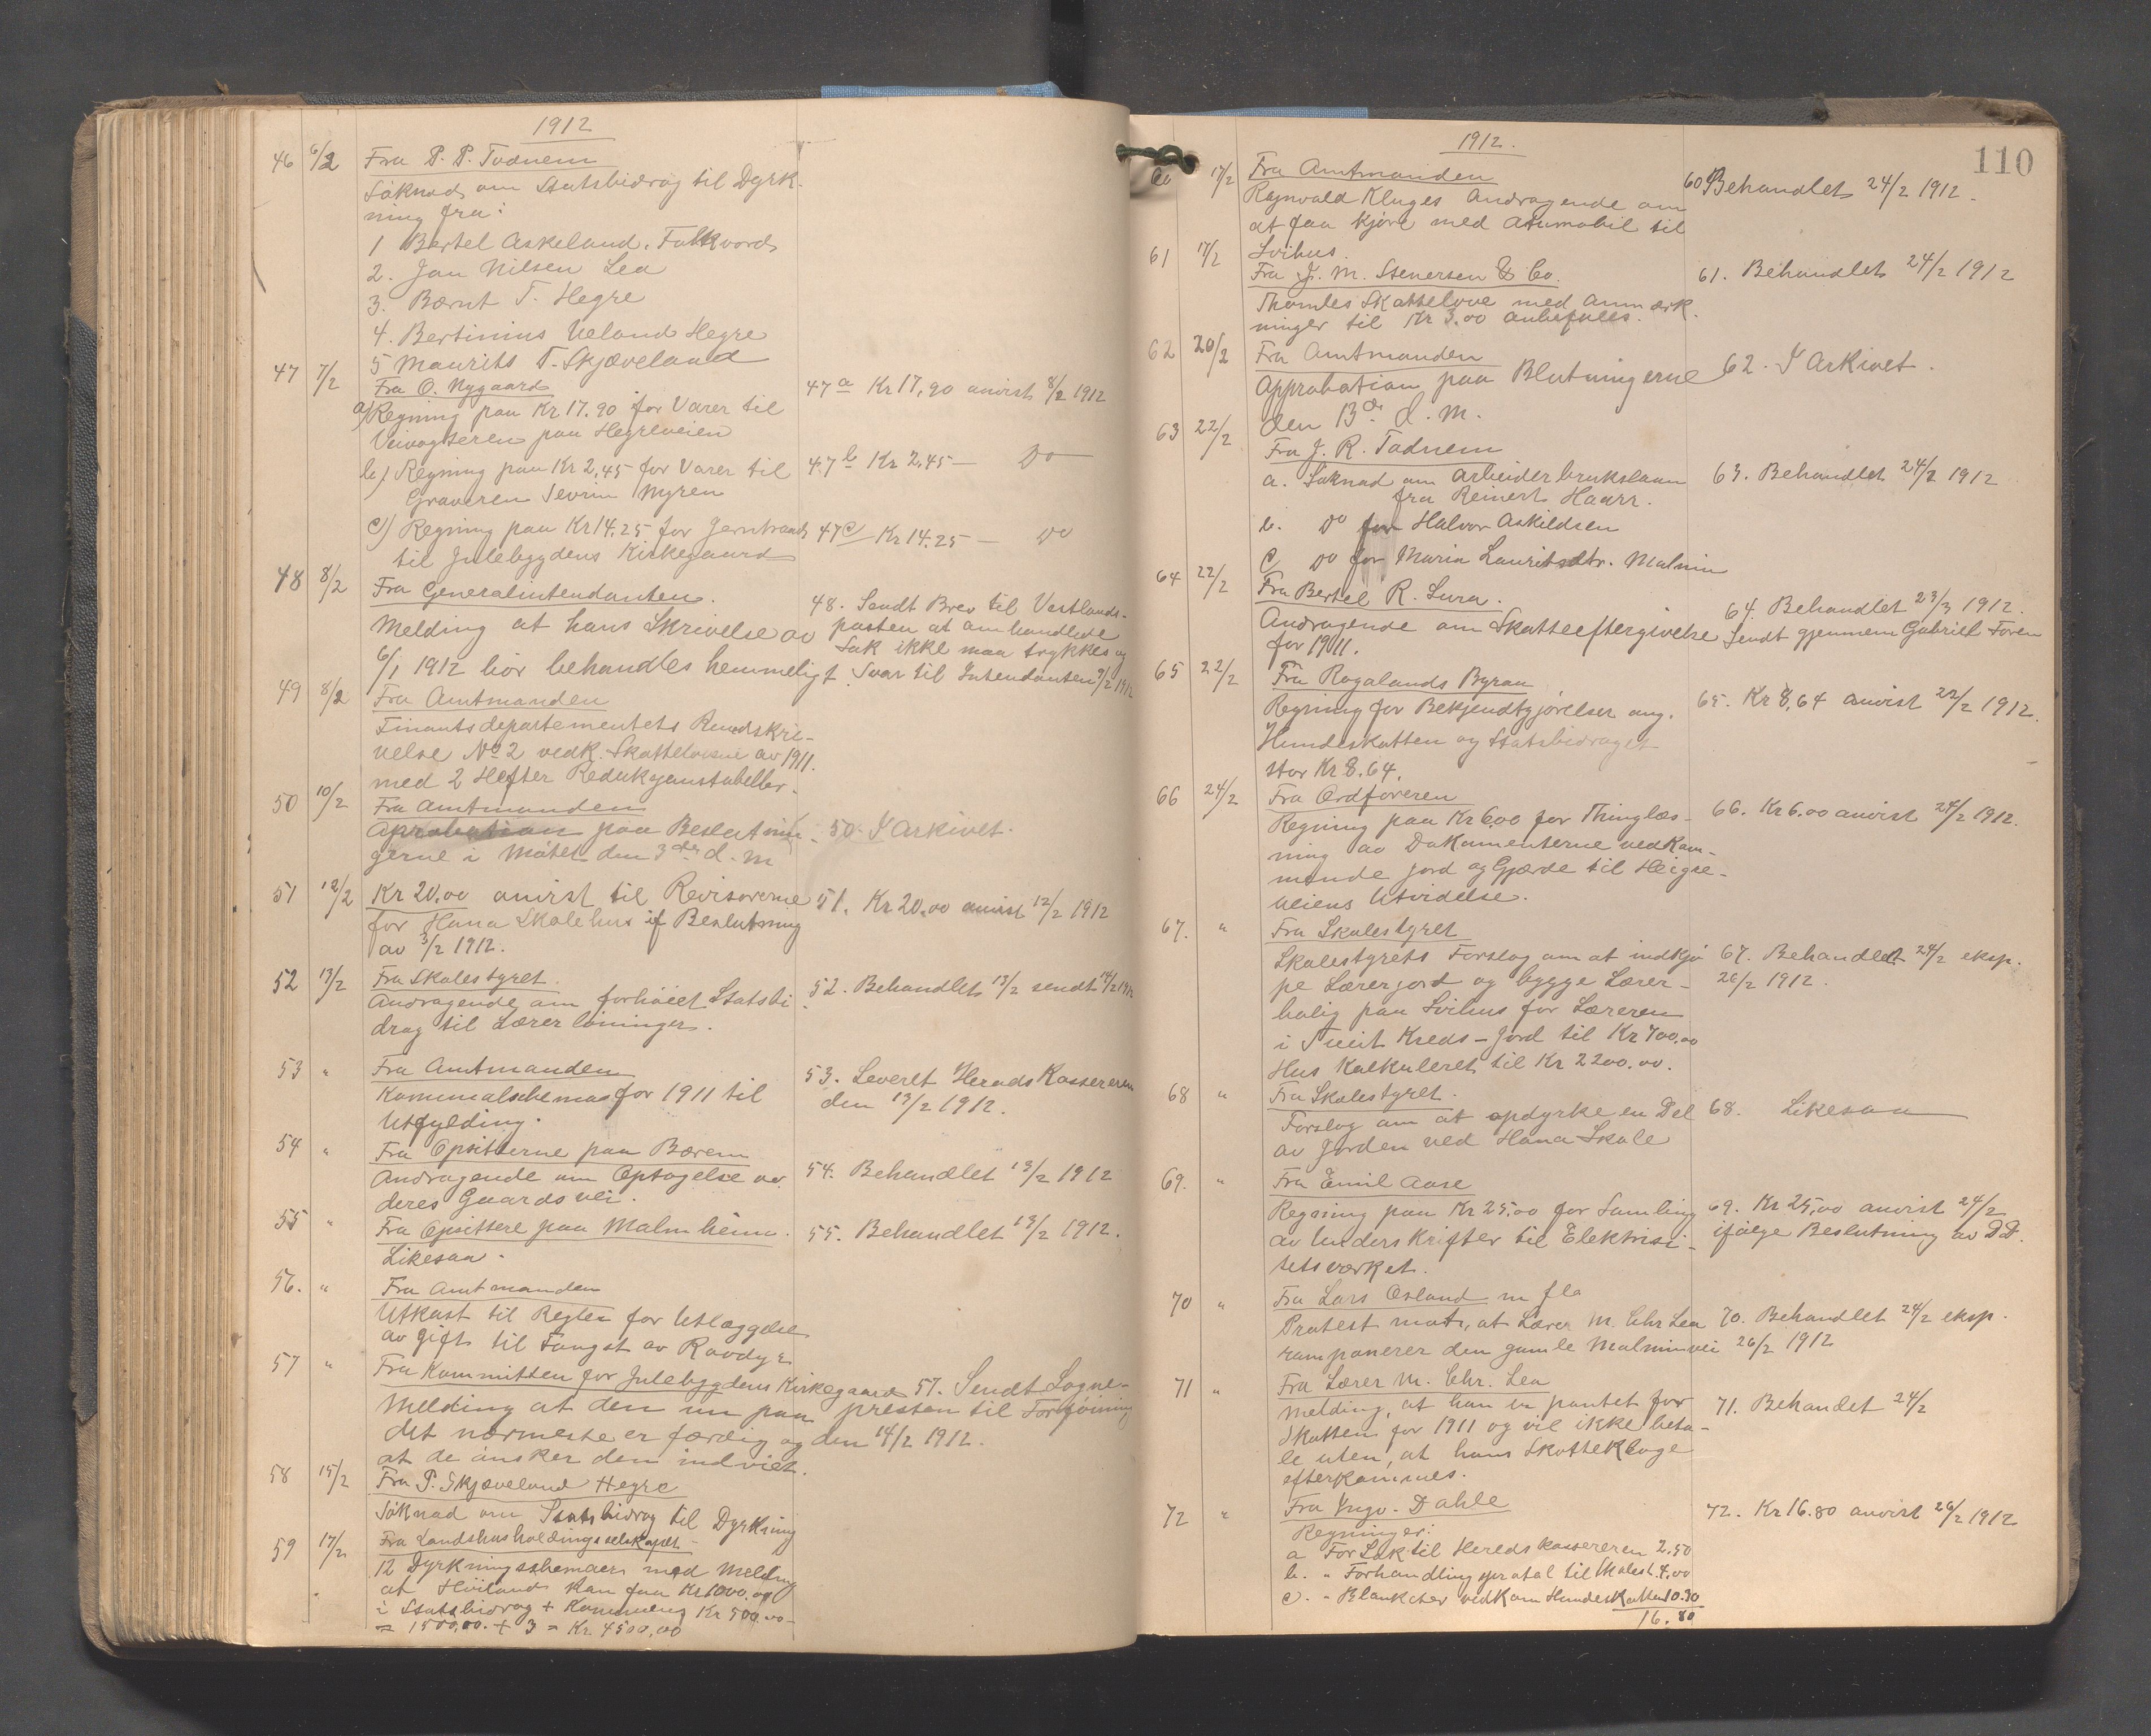 1912
46 6/2 Fra P. P. Todnem
Søknad om Statsbidrag til Dyrk-
ning fra:
1 Bertel Askeland. Folkvord
2. Jan Nilsen Lea
3. Bærnt T. Hegre
4. Bertinius Ueland Hegre
5 Maurits T. Skjæveland
47 7/2 Fra O. Nygaard
a) Regning paa Kr 17.90 for Varer til 47a Kr 17,90 anvist 8/2 1912
Veivogteren paa Hegreveien
b) Regning paa Kr 2,45 for Varer til 47b Kr 2,45 — Do
Graveren Sevrin Myren
c) Regning paa Kr 14.25 for Jerntraad 47c) Kr 14.25 — Do
til Julebygdens Kirkegaard
48 8/2 Fra Generalintendanten. 48. Sendt Brev til Vestlands-
Melding at hans Skrivelse av posten at omhandlede
Sak ikke maa trykkes og
6/1 1912 bør behandles hemmeligt Svar til Intendanten 9/2 1912
49 8/2 Fra Amtmanden
Finantsdepartementets Rundskri-
velse No 2 vedk. Skatteloven av 1911.
med 2 Hefter Reduksjonstabeller.
50 10/2 Fra Amtmanden
Aprobation paa Beslutnin- 50. I Arkivet.
gerne i Møtet den 3de d. M
51 12/2 Kr 20.00 anvist til Revisorerne 51. Kr 20.00 anvist 12/2 1912
for Hana Skolehus if Beslutning
av 3/2 1912.
52 13/2 Fra Skolestyret. 52. Behandlet 13/2 sendt 14/2 1912
Andragende om forhøiet Statsbi-
drag til Lærerlønninger.
53 " Fra Amtmanden 53. Leveret Herredskassereren
Kommunalschemas for 1911 til den 13/2 1912.
Utfylding.
54 " Fra Opsitterne paa Bærem
Andragende om Optagelse av 54. Behandlet 13/2 1912
deres Gaardsvei.
55 " Fra Opsittere paa Malmheim. 55. Behandlet 13/2 1912.
Likesaa.
56. " Fra Amtmanden
Utkast til Regler for Utlæggelse
av Gift til Fangst av Rovdyr
57 " Fra Kommitten for Julebygdens Kirkegaard 57. Sendt Sogne-
Melding at den nu paa presten til Forføining
det nærmeste er færdig og den 14/2 1912.
at de ønsker den indviet.
58 15/2 Fra P. Skjæveland Hegre
Søknad om Statsbidrag til Dyrkning
59 17/2 Fra Landshusholdingsselskapet
12 Dyrkningsschemaer med Melding
at Høiland kan faa Kr 1000.00
i Statsbidrag + Kommunens Kr 500.00
= 1500,00. + 3 = Kr. 4500,00
1912. 110
60 17/2 Fra Amtmanden 60 Behandlet 24/2 1912.
Ragnvald Kluges Andragende om
at faa kjøre med Atumobil til
Svihus.
61 17/2 Fra J. M. Stenersen & Co. 61. Behandlet 24/2 1912
Thomles Skattelove med Anmærk-
ninger til Kr 3.00 anbefales.
62 20/2 Fra Amtmanden
Approbation paa Blutningerne 62. I Arkivet.
den 13de d. M.
63 22/2 Fra J. R. Todnem
a. Søknad om Arbeiderbrukslaan 63. Behandlet 24/2 1912
fra Reinert Haarr.
b. Do for Halvor Askildsen
c) Do for Maria Lauritsdtr. Malmin
64 22/2 Fra Bertel R. Lura. 64. Behandlet 23/3 1912.
Andragende om Skatteeftergivelse Sendt gjennem Gabriel Foren
for 1911.
65 22/2 Fra Rogalands Byraa
Regning for Bekjendtgjørelser ang. 65. Kr 8,64 anvist 22/2 1912.
Hundeskatten og Statsbidraget
stor Kr 8.64.
66 24/2 Fra Ordføreren
Regning paa Kr 6,00 for Thinglæs- 66. Kr 6.00 anvist 24/2 1912.
ning av Dokumenterne vedkom-
mende Jord og Gjærde til Heigre-
veiens Utvidelse.
67. " Fra Skolestyret
Skolestyrets Forslag om at indkjø- 67. Behandlet 24/2 eksp.
pe Lærerjord og bygge Lærer- 26/2 1912.
bolig paa Svihus for Læreren
i Tveit Kreds – Jord til Kr 700,00
Hus Kalkuleret til Kr 2200.00.
68 " Fra Skolestyret.
Forslag om at opdyrke en Del 68. Likesaa
av Jorden ved Hana Skole
69. " Fra Emil Aase
Regning paa Kr 25,00 for Samling 69. Kr 25,00 anvist 24/2
av Underskrifter til Elektrisi- ifølge Beslutning av DD.
tetsværket.
70 " Fra Lars Osland m fle
Protest mot, at Lærer M. Chr Lea 70. Behandlet 24/2 eksp.
ramponerer den gamle Malminvei 26/2 1912
71 " Fra Lærer M. Chr. Lea
Melding, at han er pantet for 71. Behandet 24/2
Skatten for 1911 og vil ikke beta-
le uten, at hans Skatteklage
efterkommes.
72 " Fra Yngv. Dahle 72. Kr 16.80 anvist 26/2 1912
Regninger:
a For Lak til Heredskassereren 2.50
b. " Forhandlingsprotol til Skolest. 4.00
c. " Blanketer vedkom Hundeskatten 10.30
16.80